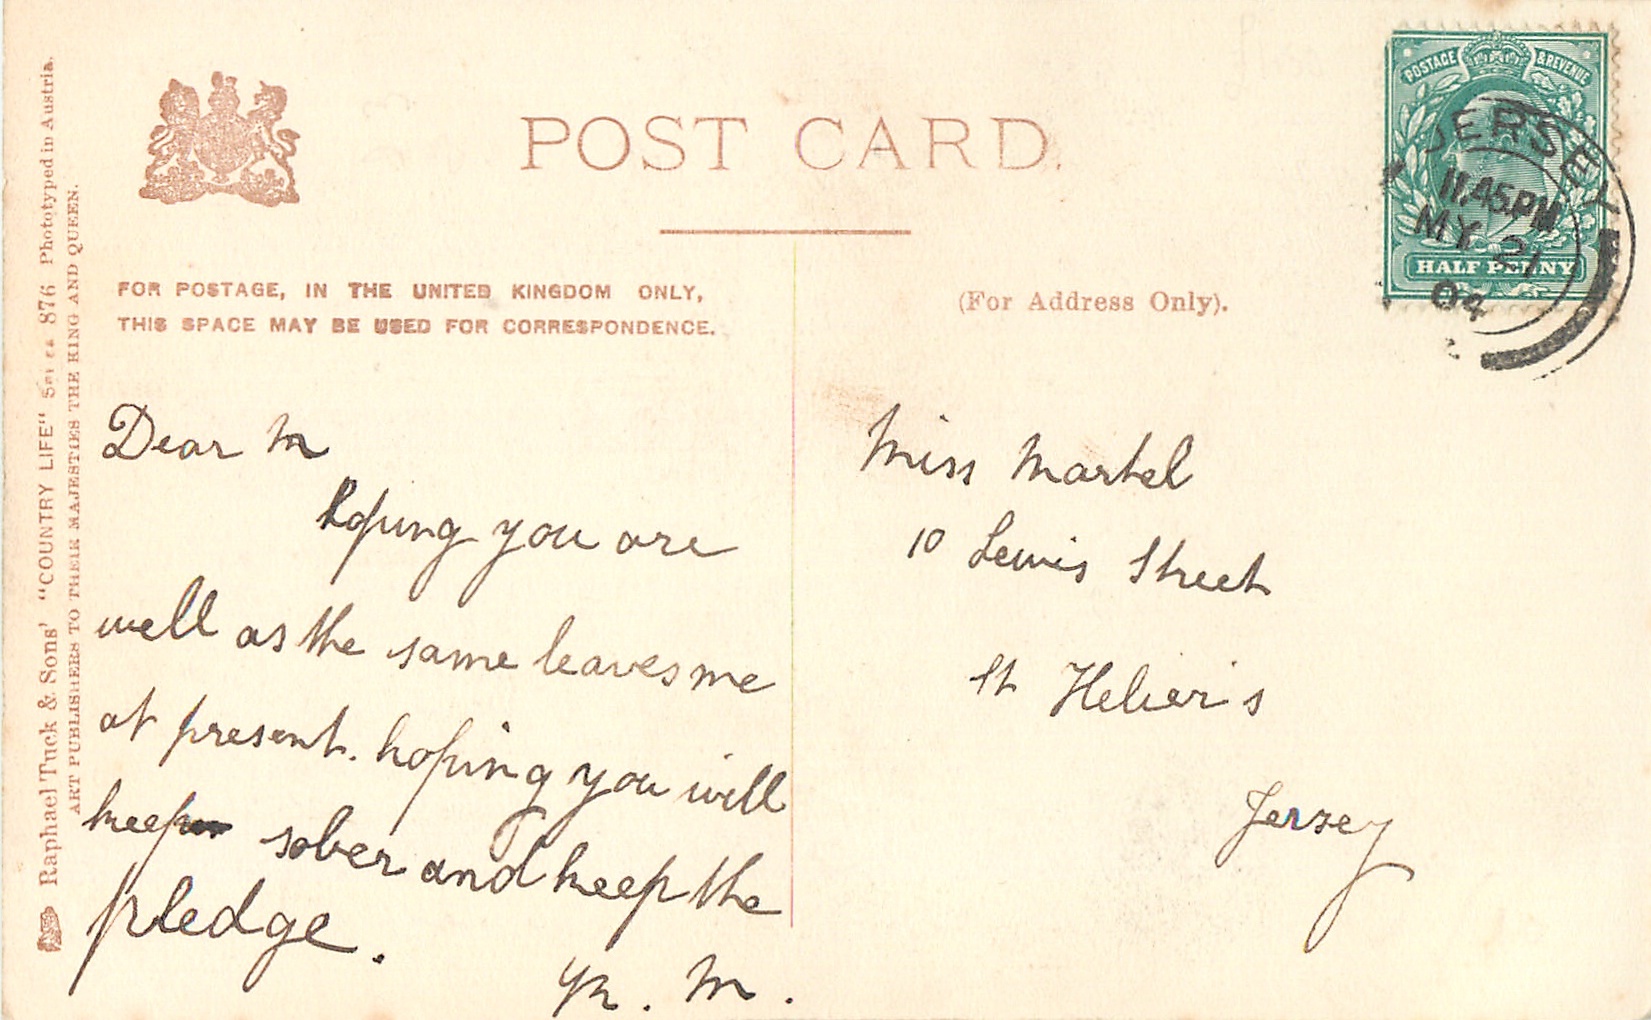 POST CARD.
FOR POSTAGE, IN THE UNITED KINGDOM ONLY,
THIS SPACE MAY BE USED FOR CORRESPONDENCE.
(For Address Only).
POSTAGE & REVENUE
HALF PENNY
JERSEY
11.45.PM
MY 21
04
Dear M
hoping you are
well as the same leaves me
at present. hoping you will
keep sober and keep the
pledge.
Yr. M.
Miss Martel
10 Lewis Street
St Helier's
Jersey
Raphael Tuck & Sons' "COUNTRY LIFE" Series 876 Phototyped in Austria.
ART PUBLISHERS TO THEIR MAJESTIES THE KING AND QUEEN.